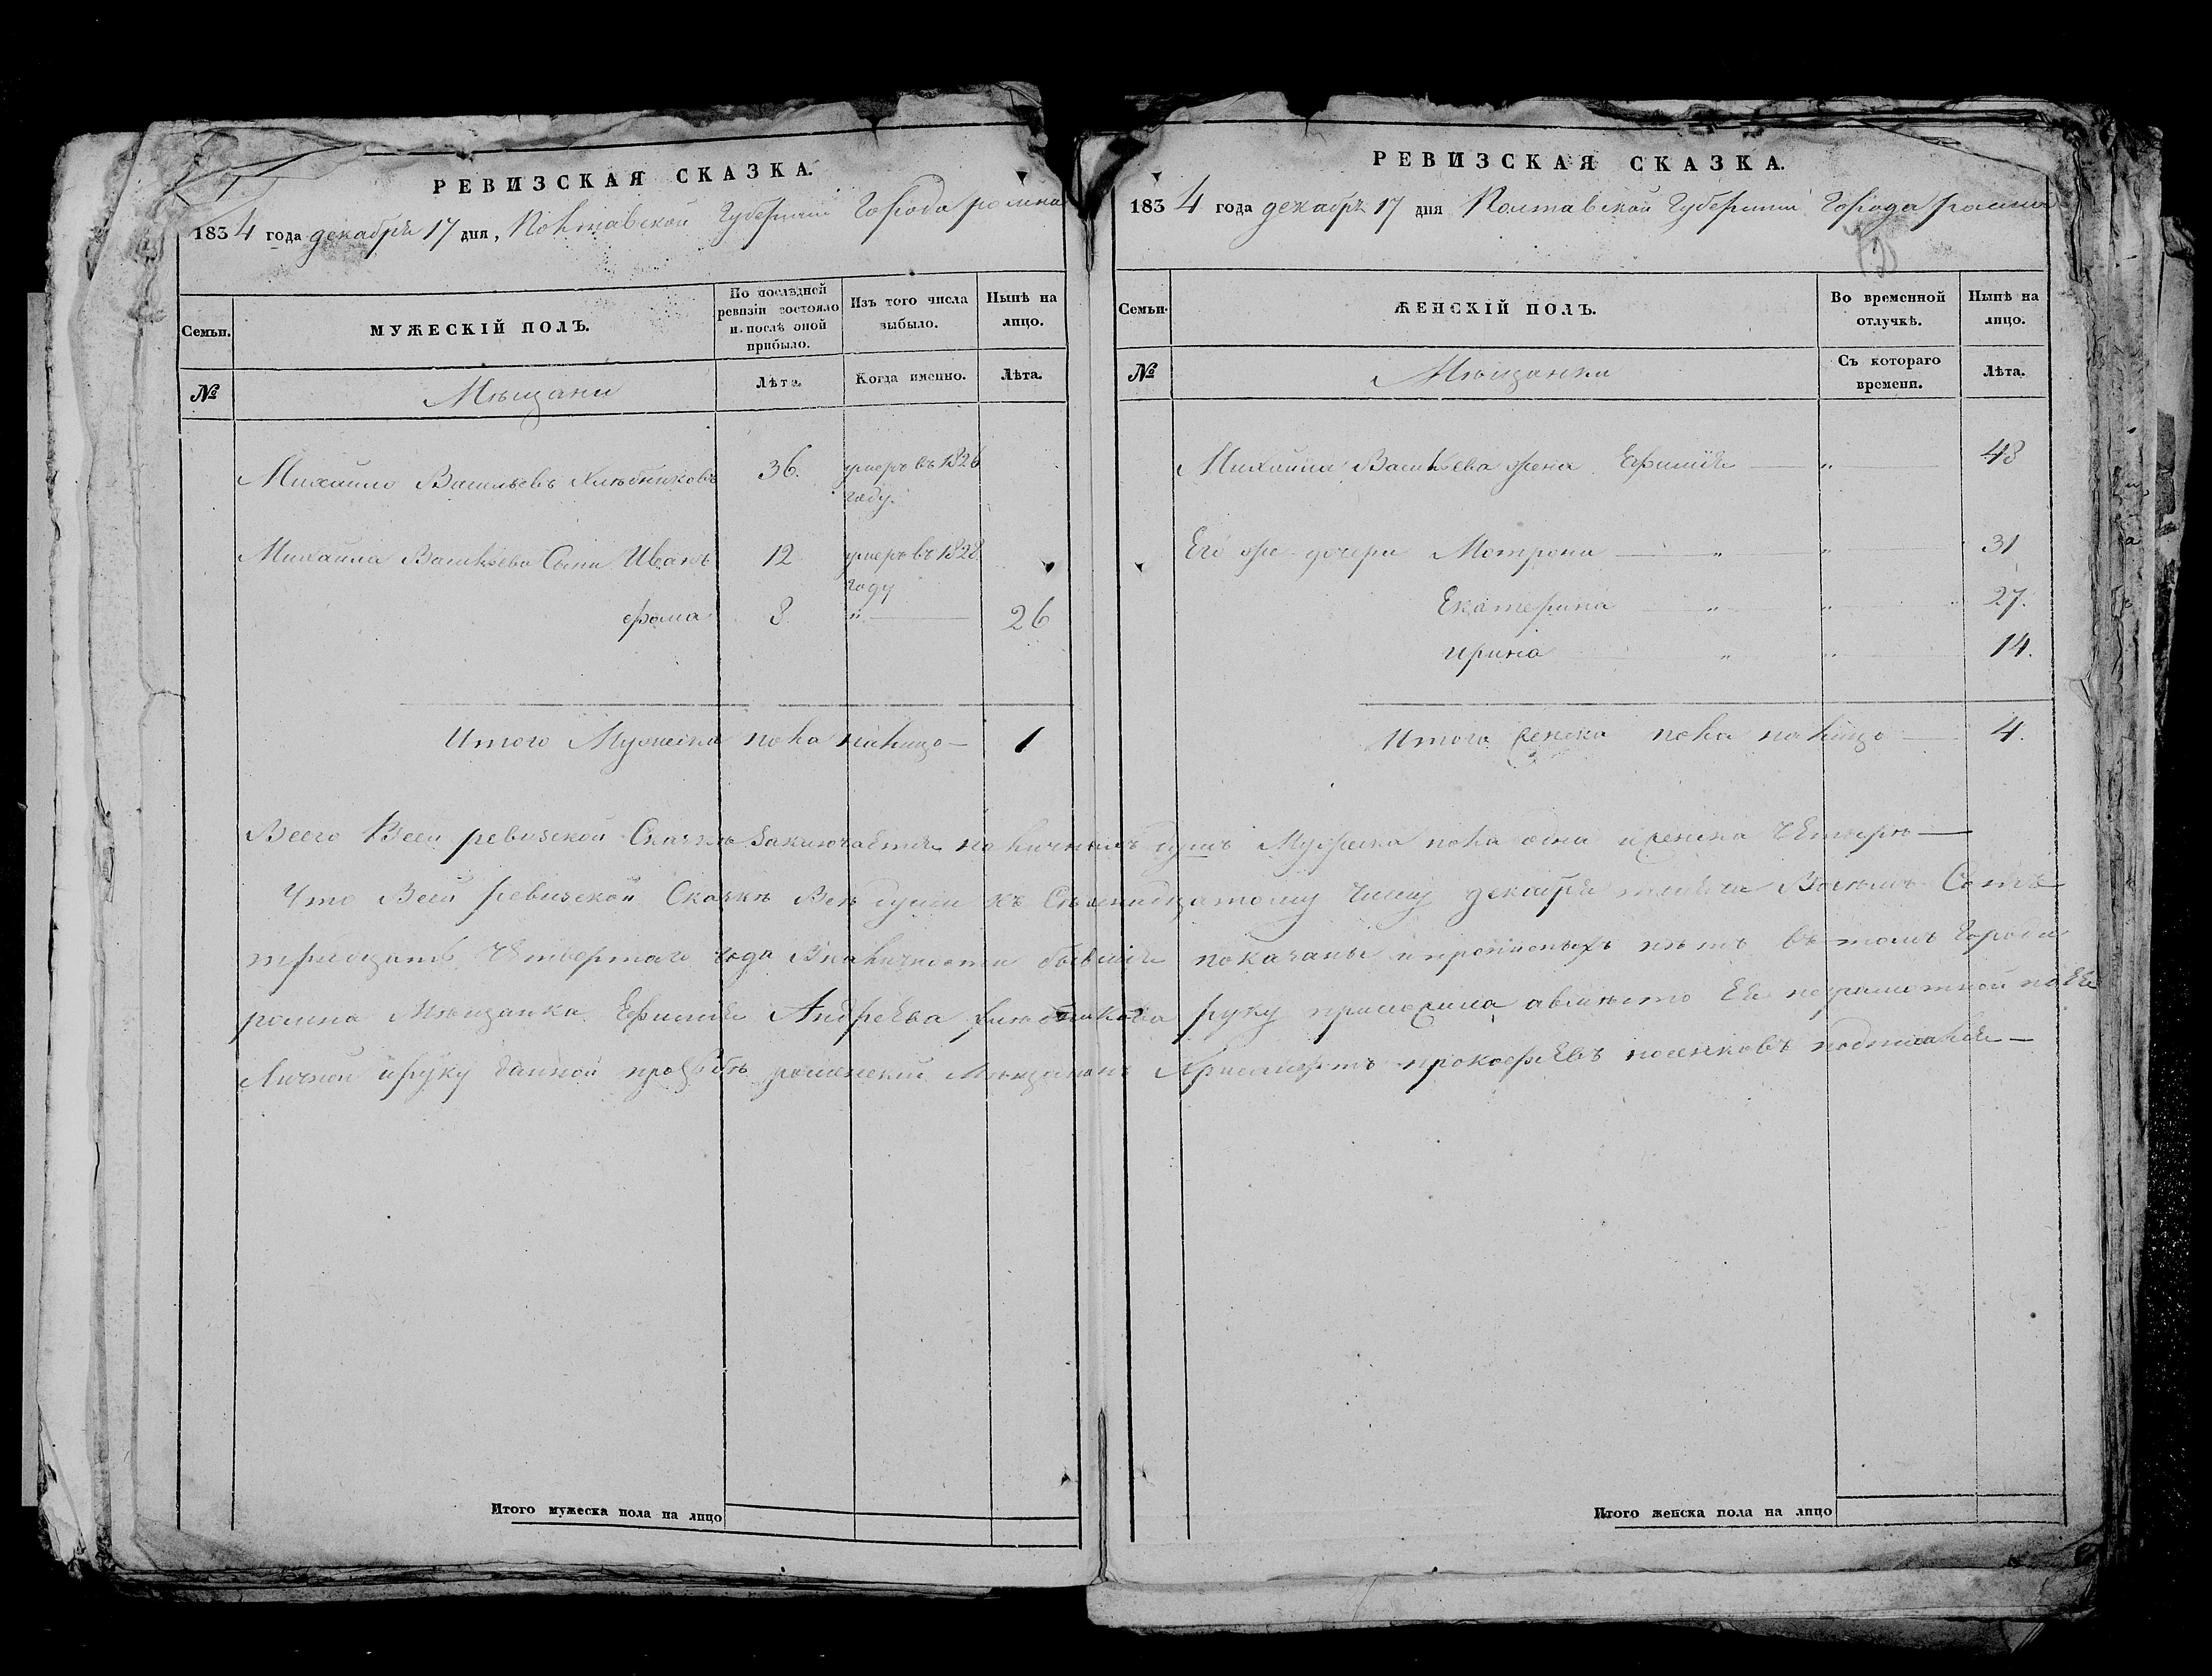 РЕВИЗСКАЯ СКАЗКА.
1834 года декабря 17 дня, Полтавской Губернии Города ромна
Семьи.
МУЖЕСКІЙ ПОЛЪ.
По послѣдней ревизіи состояло и послѣ оной прибыло.
Изъ того числа выбыло.
Нынѣ на лицо.
№
Мѣщани
Лѣта.
Когда именно.
Лѣта.
Михайло Васильевъ Хлѣбниковъ 36. умеръ въ 1826
году.
Михайла Васильева Сыни Иванъ 12 умеръ въ 1828
году
фома 8 " 26
Итого Мужеска пола налицо 1
РЕВИЗСКАЯ СКАЗКА.
1834 года декабря 17 дня Полтавской Губернии Города ромна
Семьи.
ЖЕНСКІЙ ПОЛЪ.
Во временной отлучкѣ.
Нынѣ на лицо.
№
Мѣщанки
Съ котораго времени.
Лѣта.
Михайла Васильева жена Ефимія " 48
Его же дочери Мотрона " " 31
Екатерина " " 27.
ирина " " 14.
Итого женска пола налицо 4.
Всего Всей ревизской Сказкѣ Заключается наличныхъ душъ Мужеска пола одна и женска Четыре
Что Всей ревизской Сказкѣ Всѣ души къ Семнадцатому Числу декабря тысяча Восемь Сотъ
тридцать Четвертаго года Вналичности бывшія показаны и прописныхъ нѣтъ въ томъ Города
ромна Мѣщанка Ефимія Андреева Хлѣбникова руку приложила авмѣсто Ея неграмотной поЕя
Личной и руку данной прозбѣ роменский Мѣщанинъ прокофьЕвъ подписалъ
Итого мужеска пола на лицо
Итого женска пола на лицо